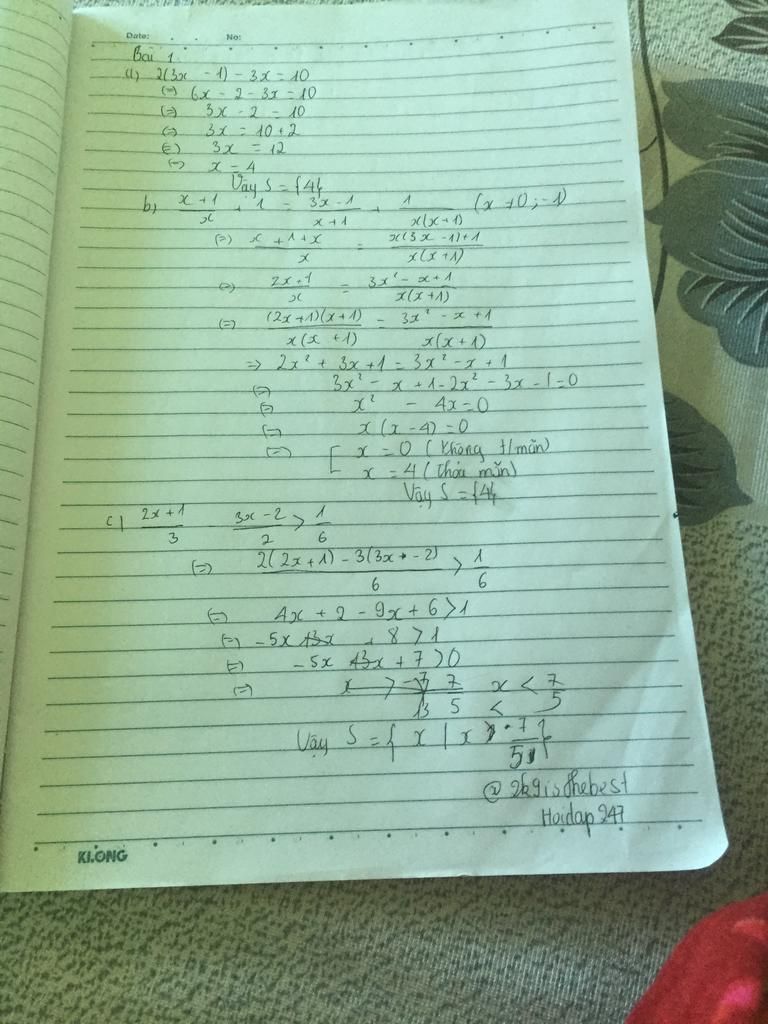 Date: No:
Bài 1
a) 2(3x - 1) - 3x = 10
(=) 6x - 2 - 3x = 10
(=) 3x - 2 = 10
(=) 3x = 10 + 2
(=) 3x = 12
(=) x = 4
Vậy S = {4}
b) (x + 1)/x + 1 = (3x - 1)/(x + 1) + 1/(x(x + 1)) (x ≠ 0; -1)
(=) (x + 1 + x)/x = (x(3x - 1) + 1)/(x(x + 1))
(=) (2x + 1)/x = (3x² - x + 1)/(x(x + 1))
(=) ((2x + 1)(x + 1))/(x(x + 1)) = (3x² - x + 1)/(x(x + 1))
=> 2x² + 3x + 1 = 3x² - x + 1
(=) 3x² - x + 1 - 2x² - 3x - 1 = 0
(=) x² - 4x = 0
(=) x(x - 4) = 0
(=) [ x = 0 (không t/mãn)
x = 4 (thỏa mãn)
Vậy S = {4}
c) (2x + 1)/3 (3x - 2)/2 > 1/6
(=) (2(2x + 1) - 3(3x - 2))/6 > 1/6
(=) 4x + 2 - 9x + 6 > 1
(=) -5x + 8 > 1
(=) -5x + 7 > 0
(=) x < 7/5
Vậy S = { x | x < 7/5 }
@2k9isthebest
Hoidap247
KLONG